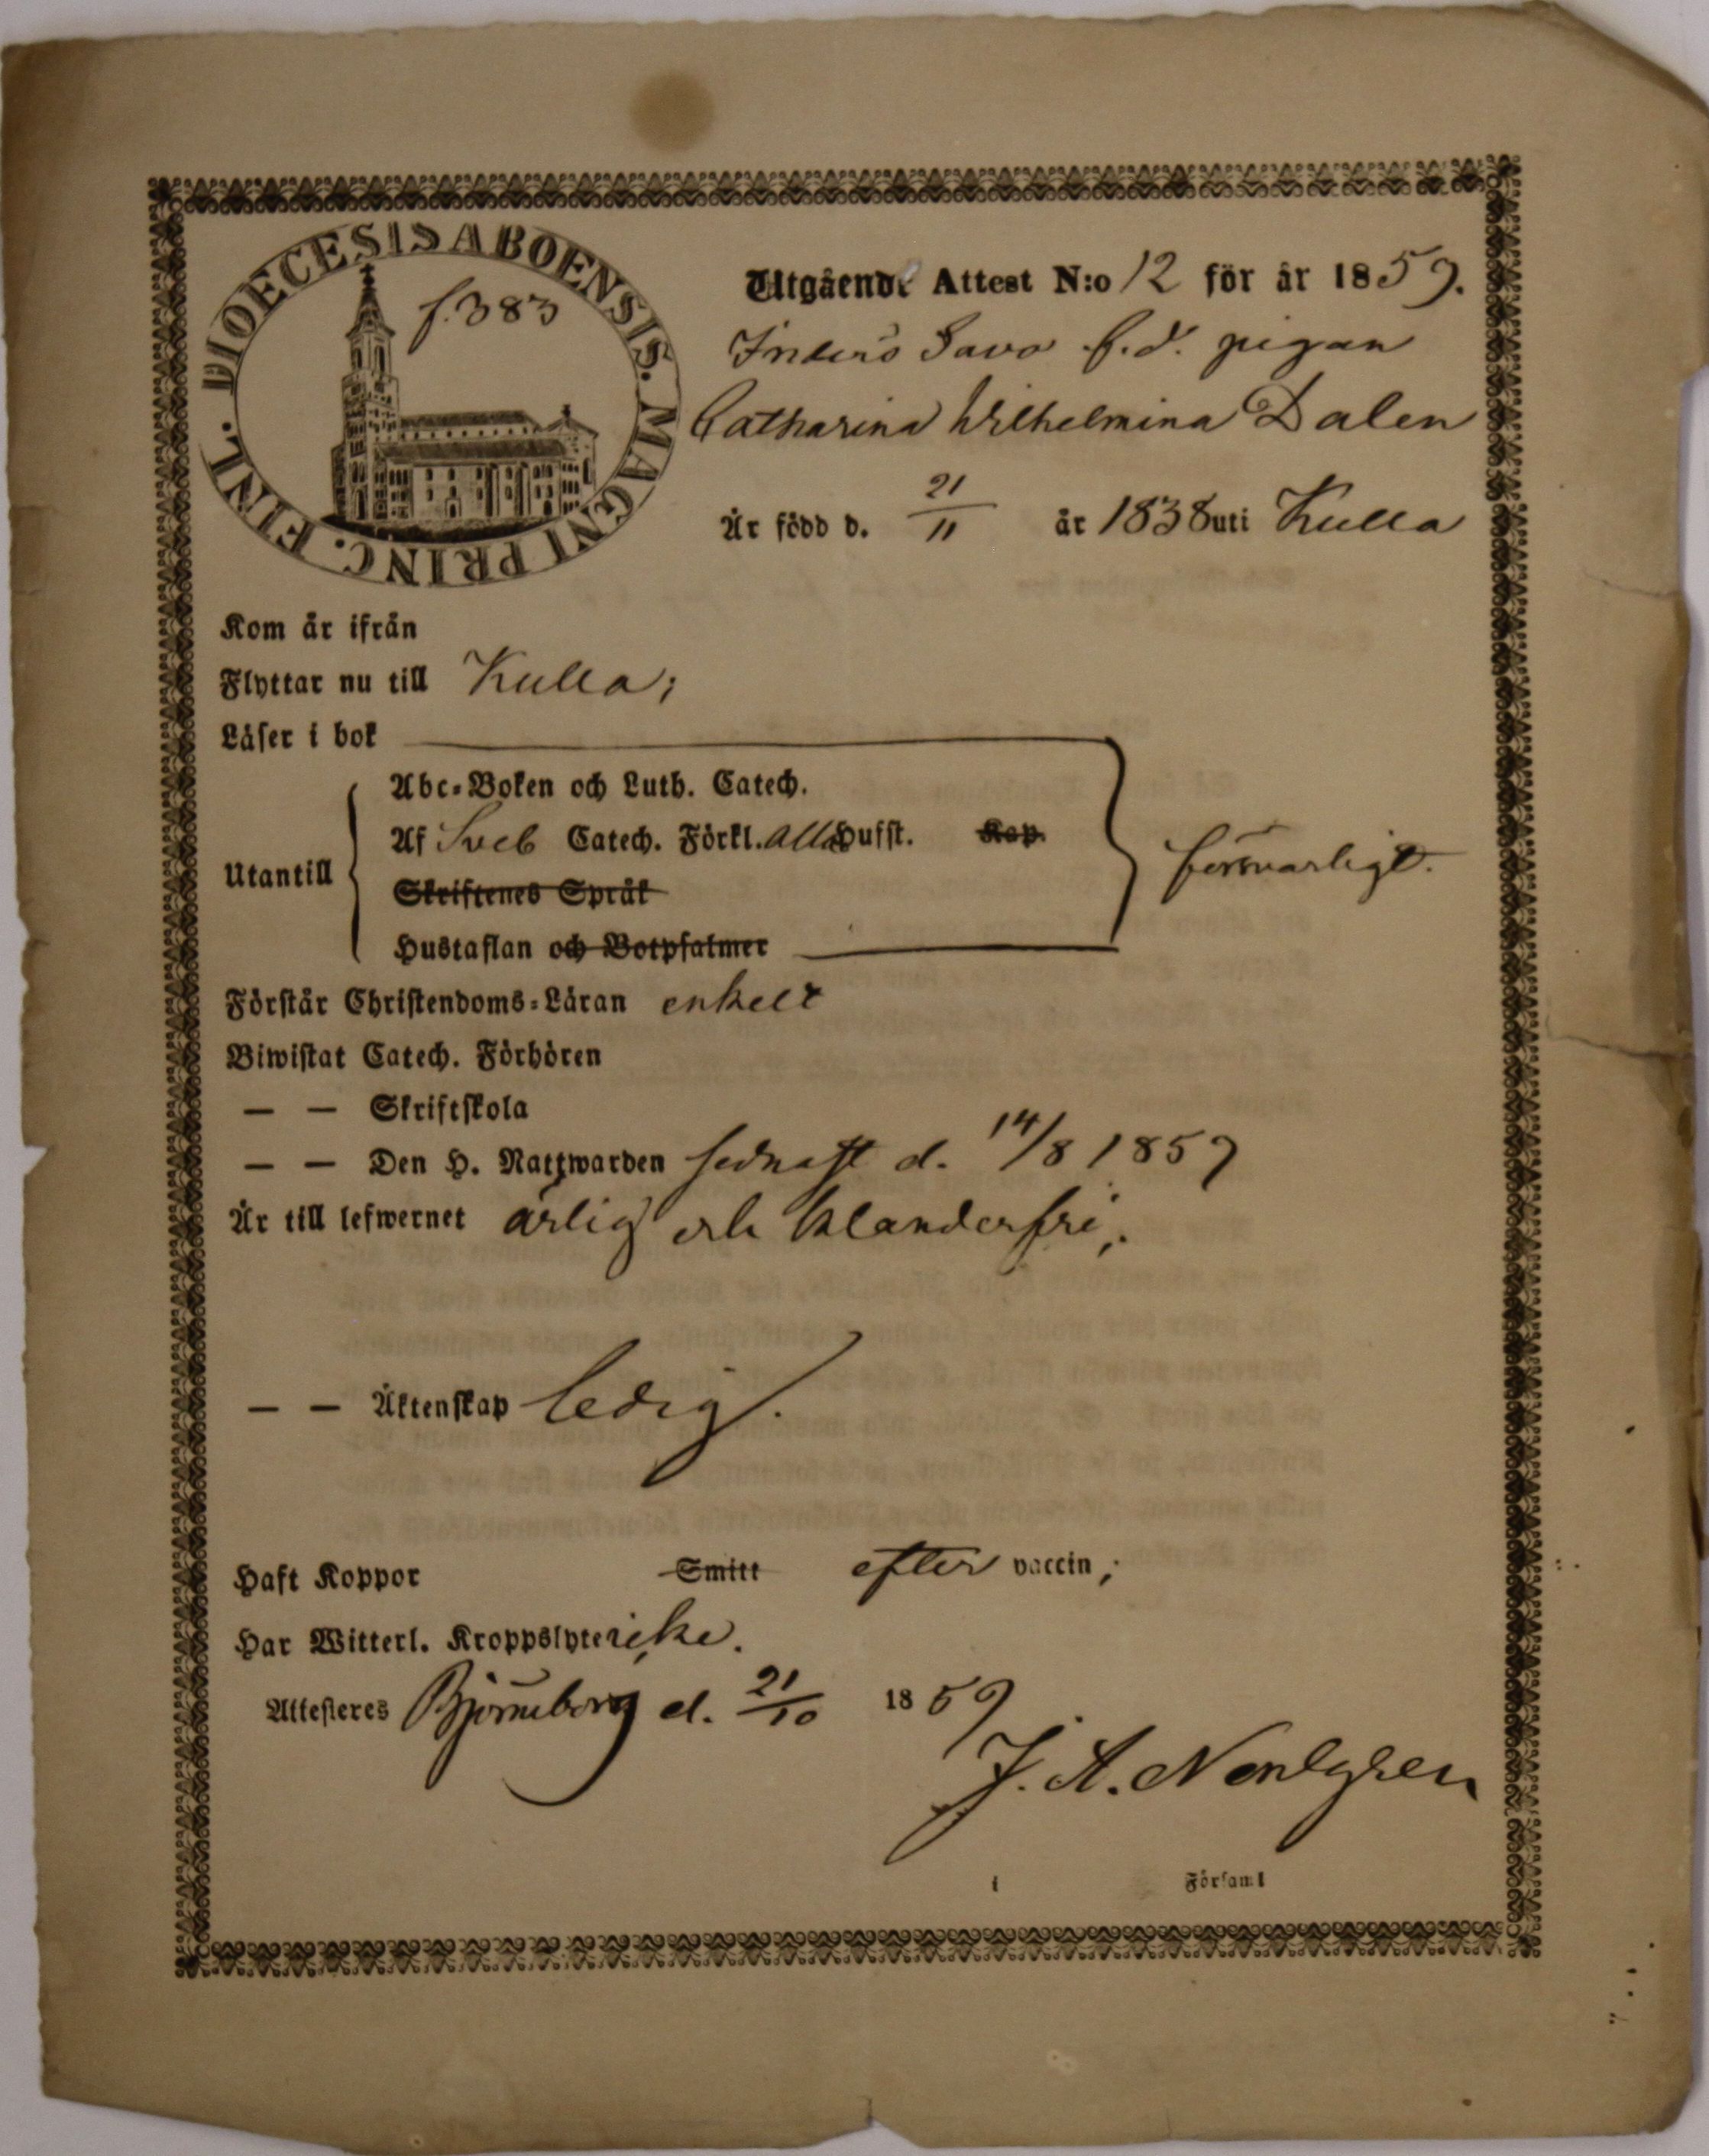 DIOECESIS ABOENSIS. MAGNI PRINC. FINL.
f. 383
Utgående Attest N:o 12 för år 1859.
Savo f.d. pigan
Catharina Wilhelmina Dalen
Är född d. 21/11 år 1838 uti Kulla
Kom år ifrån
Flyttar nu till Kulla;
Läser i bok
Utantill
Abc-Boken och Luth. Catech.
Af Sveb Catech. Förkl. alla Hufst. Kap.
Skriftenes Språk
försvarligt.
Hustaflan och Botpsalmer
Förstår Christendoms-Läran enkelt
Biwistat Catech. Förhören
— — Skriftskola
— — Den H. Nattwarden sednast d. 14/8 1859
Är till lefwernet ärlig och klanderfri,.
— — Äktenskap ledig.
Haft Koppor Smitt efter vaccin;
Har Witterl. Kroppslyte icke.
Attesteres Björneborg d. 21/10 1859
J. A. Nordgren
i Församl